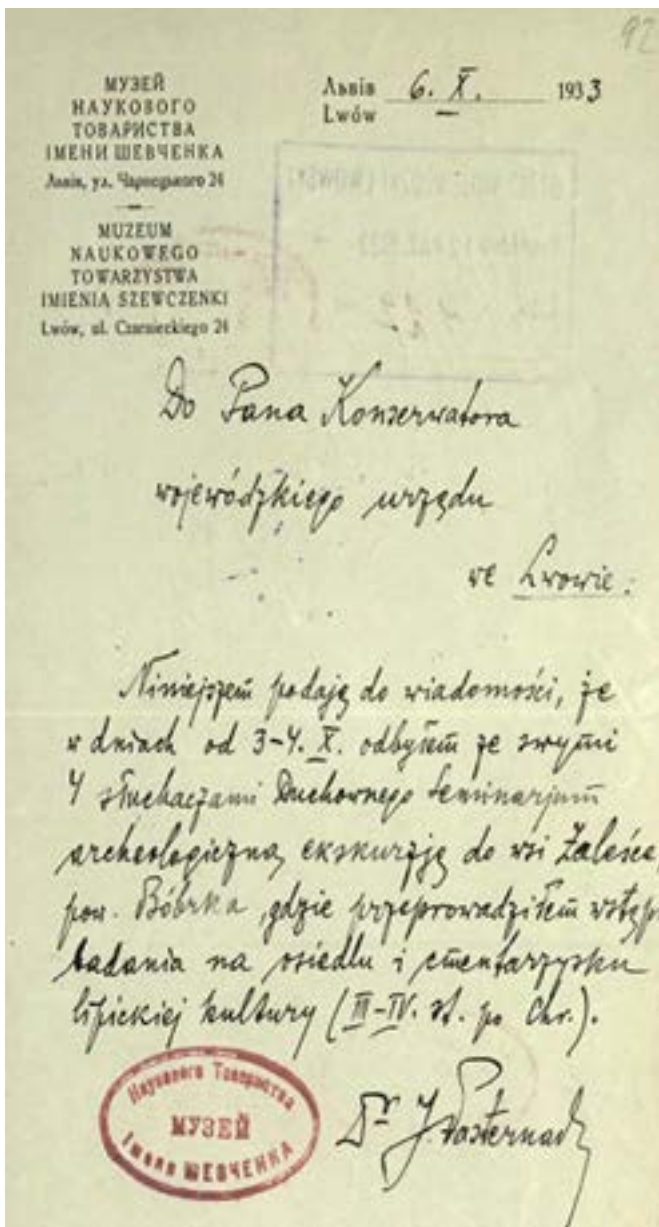 92
МУЗЕЙ
НАУКОВОГО
ТОВАРИСТВА
ІМЕНИ ШЕВЧЕНКА
Львів, ул. Чарнецького 24
MUZEUM
NAUKOWEGO
TOWARZYSTWA
IMIENIA SZEWCZENKI
Lwów, ul. Czarnieckiego 24
Львів
Lwów 6. X. 1933
Do Pana Konserwatora
wojewódzkiego urzędu
we Lwowie:
Niniejszem podaję do wiadomości, że
w dniach od 3-4. X. odbyłem ze swymi
4 słuchaczami Duchownego Seminarjum
archeologiczną ekskurzję do wsi Zaleśce,
pow. Bóbrka, gdzie przeprowadziłem wstęp
badania na osiedlu i cmentarzysku
lipickiej kultury (III-IV. st. po Chr.).
Dr J. Pasternak
Наукового Товариства
МУЗЕЙ
Імени ШЕВЧЕНКА